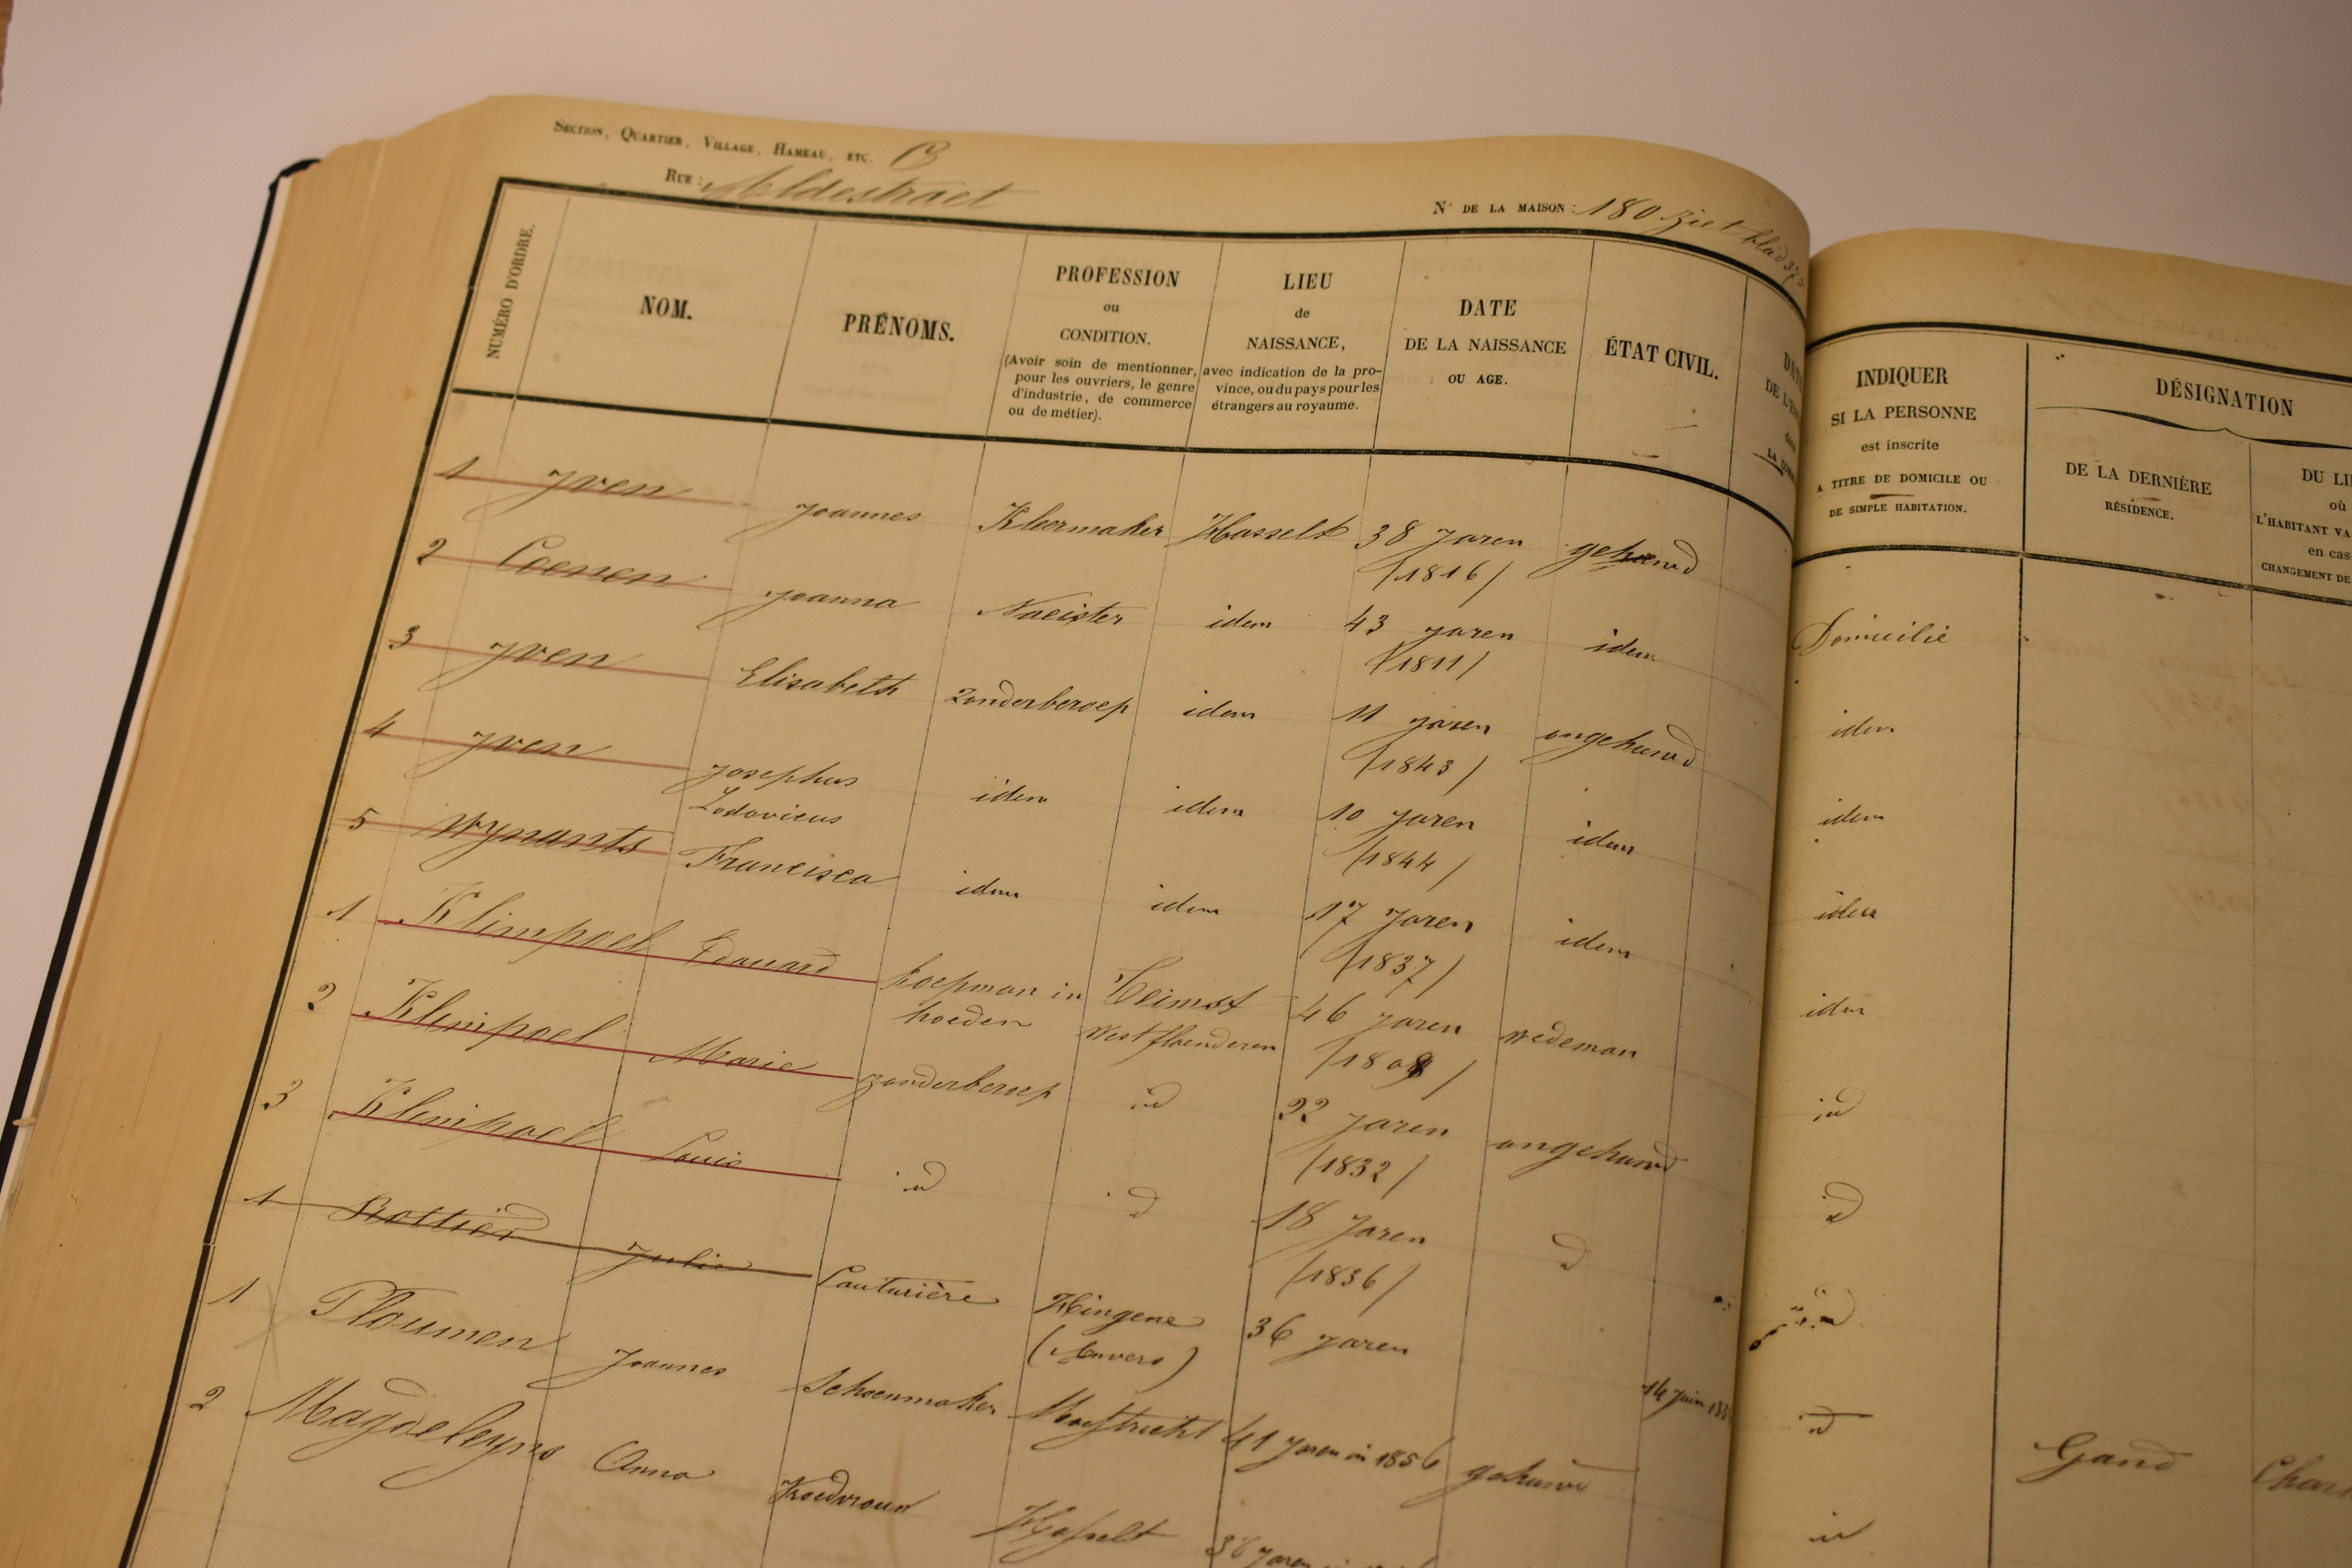 SECTION, QUARTIER, VILLAGE, HAMEAU, ETC. B
RUE : Aldestraet
N° DE LA MAISON : 180 ziet blad 373
NUMÉRO D'ORDRE.
NOM.
PRÉNOMS.
PROFESSION
ou
CONDITION.
(Avoir soin de mentionner,
pour les ouvriers, le genre
d'industrie, de commerce
ou de métier).
LIEU
de
NAISSANCE,
avec indication de la pro-
vince, ou du pays pour les
étrangers au royaume.
DATE
DE LA NAISSANCE
OU AGE.
ÉTAT CIVIL.
INDIQUER
SI LA PERSONNE
est inscrite
A TITRE DE DOMICILE OU
DE SIMPLE HABITATION.
DÉSIGNATION
DE LA DERNIÈRE
RÉSIDENCE.
DU LI
où
L'HABITANT VA
en cas
CHANGEMENT DE
1 Yven Joannes Kleermaker Hasselt 38 Jaren gehuwd Domicilie
(1816)
2 Coenen Joanna Naeister idem 43 jaren idem idem
(1811)
3 Yven Elisabeth Zonderberoep idem 11 jaren ongehuwd idem
(1843)
4 Yven Josephus idem idem 10 jaren idem idem
Lodovicus (1844)
5 Wynants Francisca idem idem 17 Jaren idem idem
(1837)
1 Klimpoel Edouard koepman in 46 Jaren wedeman id
hoeden West flaenderen
2 Klimpoel Marie zonderberoep id 22 Jaren ongehuwd id
(1832)
3 Klimpoel Louis id id 18 Jaren id id
(1836)
1 Rottier Julie Couturière Hingene 36 jaren 14 Juin id Gand
(Anvers)
1 Ploumen Joannes Schoenmaker Maestricht 41 Jaren in 1856 gehuwd id
2 Magdeleyns Anna Hasselt 38 Jaren